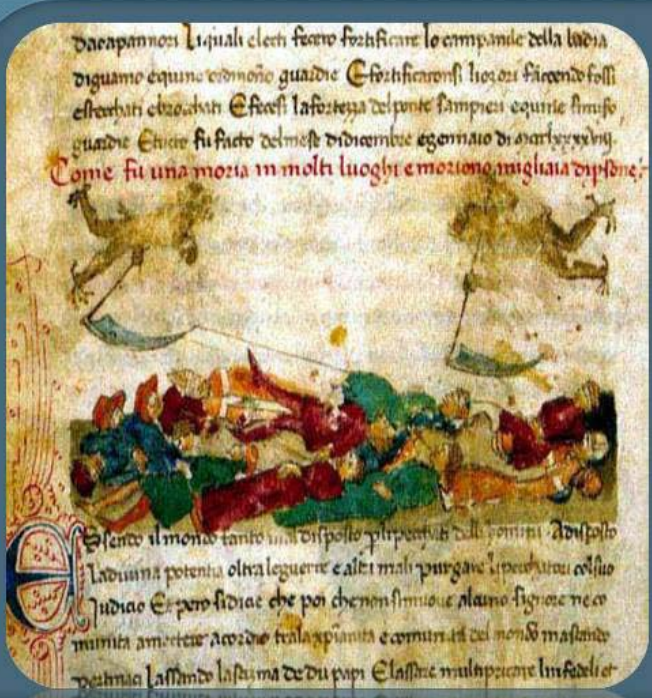 dacapannori Liquali electi fecero fortificare lo campanile della badia
diguamo equine ordinoño guardie Efortificaronsi faccendo fossi
estecchati Efecesi lafortezza delponte sampieri equine
guardie fu facto delmese didicembre egennaio di
Come fu una moria in molti luoghi e moriono migliaia dipsone
Essendo il mondo tanto mal disposto pli peccati delli homini Adisposto
Ladiuina potentia oltra leguerre e altri mali purgare colsuo
Iudicio Et pero sidice che poi chenon alcuno signore ne co
munita amectere acordio tralaxpianita e comunita del mondo mastando
pertinaci Lassando lascizma de du papi Elassare multipricare linfedeli et